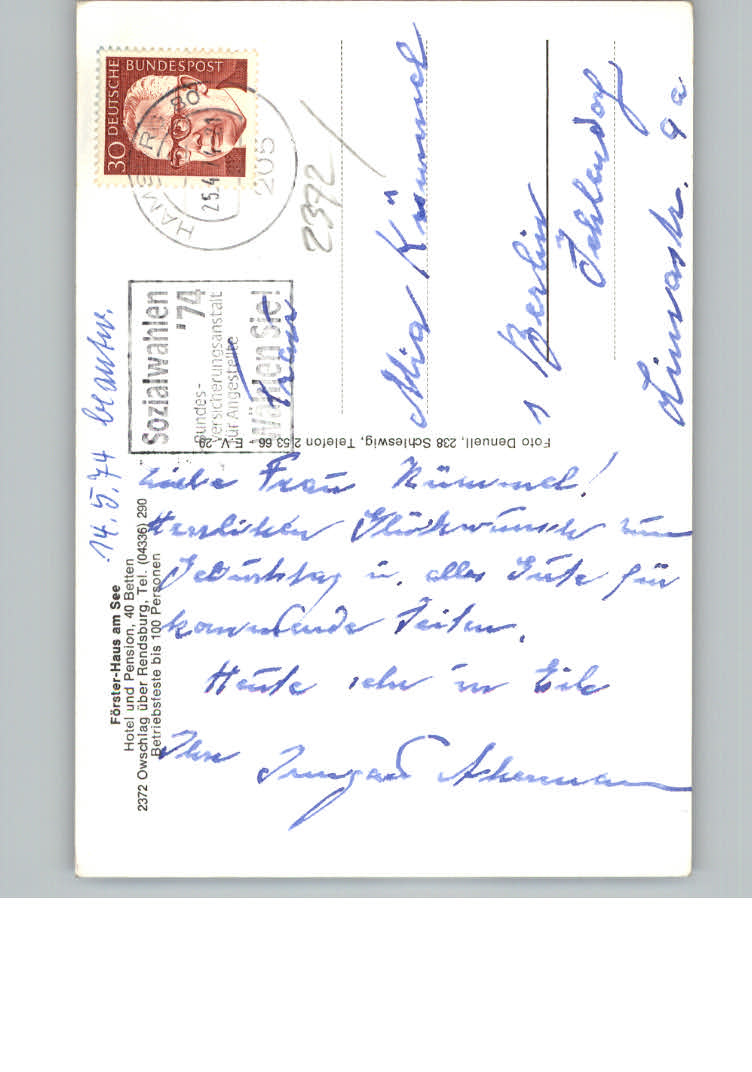 DEUTSCHE BUNDESPOST
30
HAMBURG 80
25.4.74
205
Sozialwahlen
'74
Bundes-
versicherungsanstalt
für Angestellte
Wählen Sie!
2372
14.5.74 beantw.
Frau
Mia Kümmel
1 Berlin
Zehlendorf
Limastr. 9a
Foto Denuell, 238 Schleswig, Telefon 2 53 66 - E.V.-28
Förster-Haus am See
Hotel und Pension, 40 Betten
2372 Owschlag über Rendsburg, Tel. (04336) 290
Betriebsfeste bis 100 Personen
Liebe Frau Kümmel!
Herzlichen Glückwunsch zum
Geburtstag u. alles Gute für
kommende Zeiten.
Heute sehr in Eile
Ihre Irmgard Ackermann